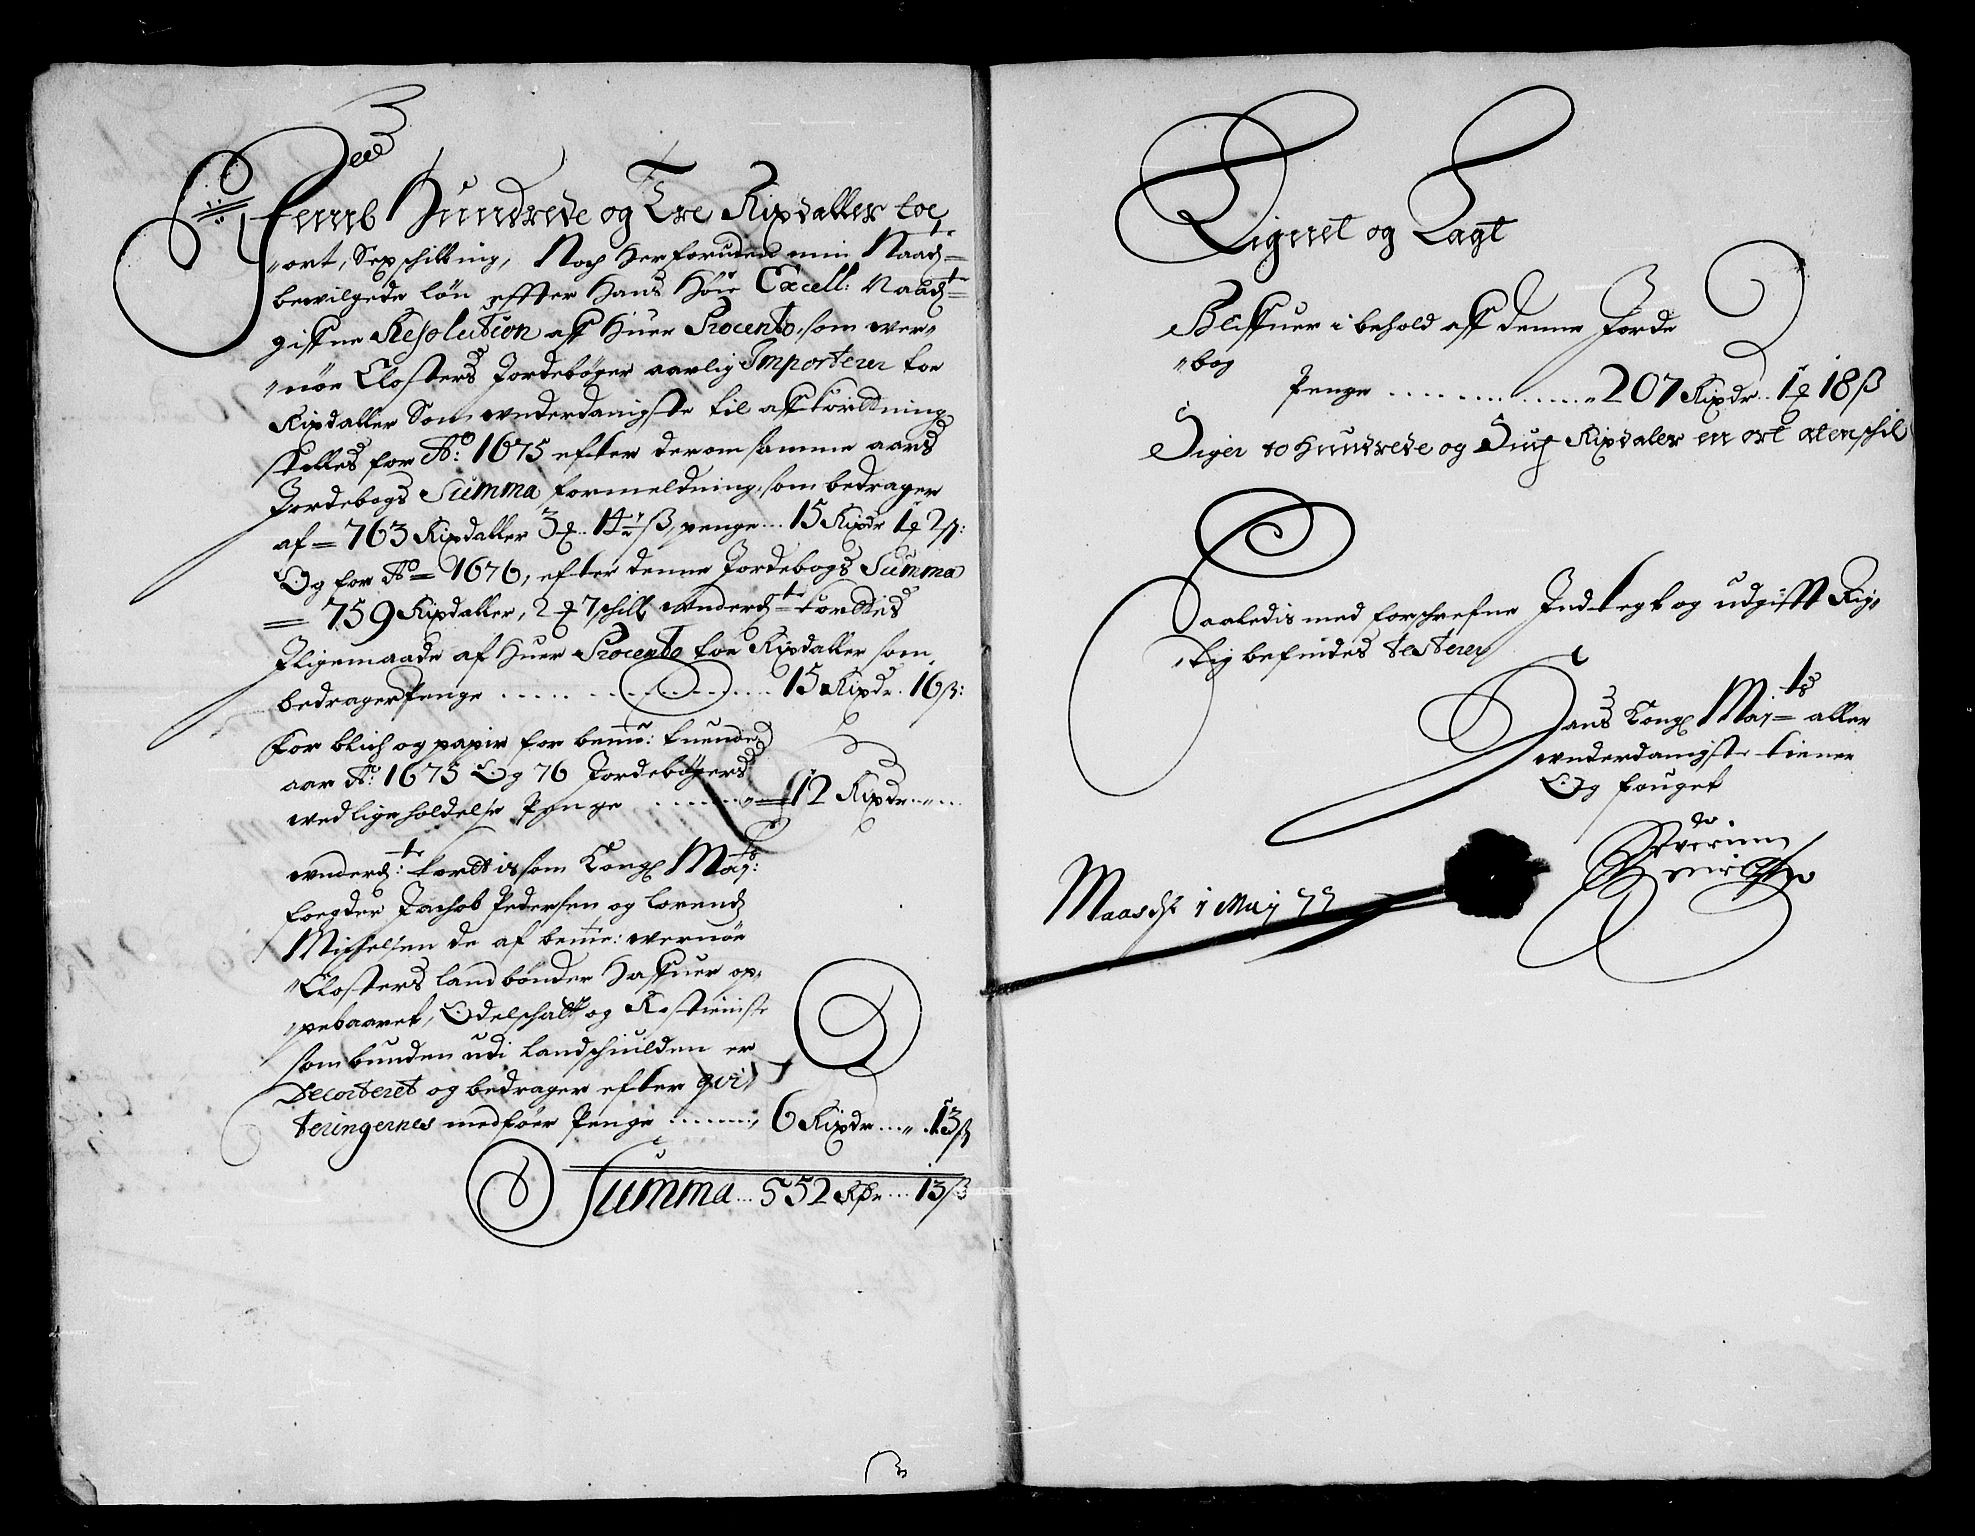 Femb Hundrede og Tre Rixdaller toe
ort, Sex schilling, Noch Herforuden min Naadte
bevilgede løn effter Hans Høie Excell: Naadte
giffne Resolution aff Huer Procento, som wer-
nøe Closters Jordebøger aarlig Importerer toe
Rixdaller Som wnderdanigste til affkortning
stilles for Ao: 1675 efter derom samme aars
Jordebogs Summa formeldning, som bedrager
af = 763 Rixdaller 3 ꝥ 14½ ß, penge ... 15 Rixdr 1 ꝥ 2 ß:
Og for Ao = 1676, efter denne Jordebogs Summa
= 759 Rixdaller, 2 ꝥ 7 schill wnderdte kortes
Jligemaade af Huer Procento toe Rixdaller som
bedrager Penge ......... 15 Rixdr. 16 ß:
For blich og papir for bemte: tuende
aar Ao: 1675 Og 76 Jordebøgers
wedligeholdelse Penge ........ 12 Rixdr
wnderdte: kortis som Kongl Mayts:
foegder Jachob Pedersen og Lorends
Michelsen de af bemte: wernøe
Closters landbønder Haffuer op-
pebaaret, Odelschatt og Rostieniste
som bunden udi landschiulden er
Decorteret og bedrager efter qvi-
teringernes medføer Penge ........ 6 Rixdr ... 13 ß
Summa ... 552 Rdr ... 13 ß
Ligned og Lagt
Bliffuer i behold aff denne Jorde
bog
Penge .............. 207 Rixdr .. 1 ꝥ 18 ß
Siger to Hundrede og Siuf Rixdaler en ort atenschil
Saaledis med forschrefne Indtegt og udgifft Rig-
tig befindes testerer
Hans Kongl Mayts aller
wnderdanigste tiener
Og fouget
Severinn
Maasch 1 May 77